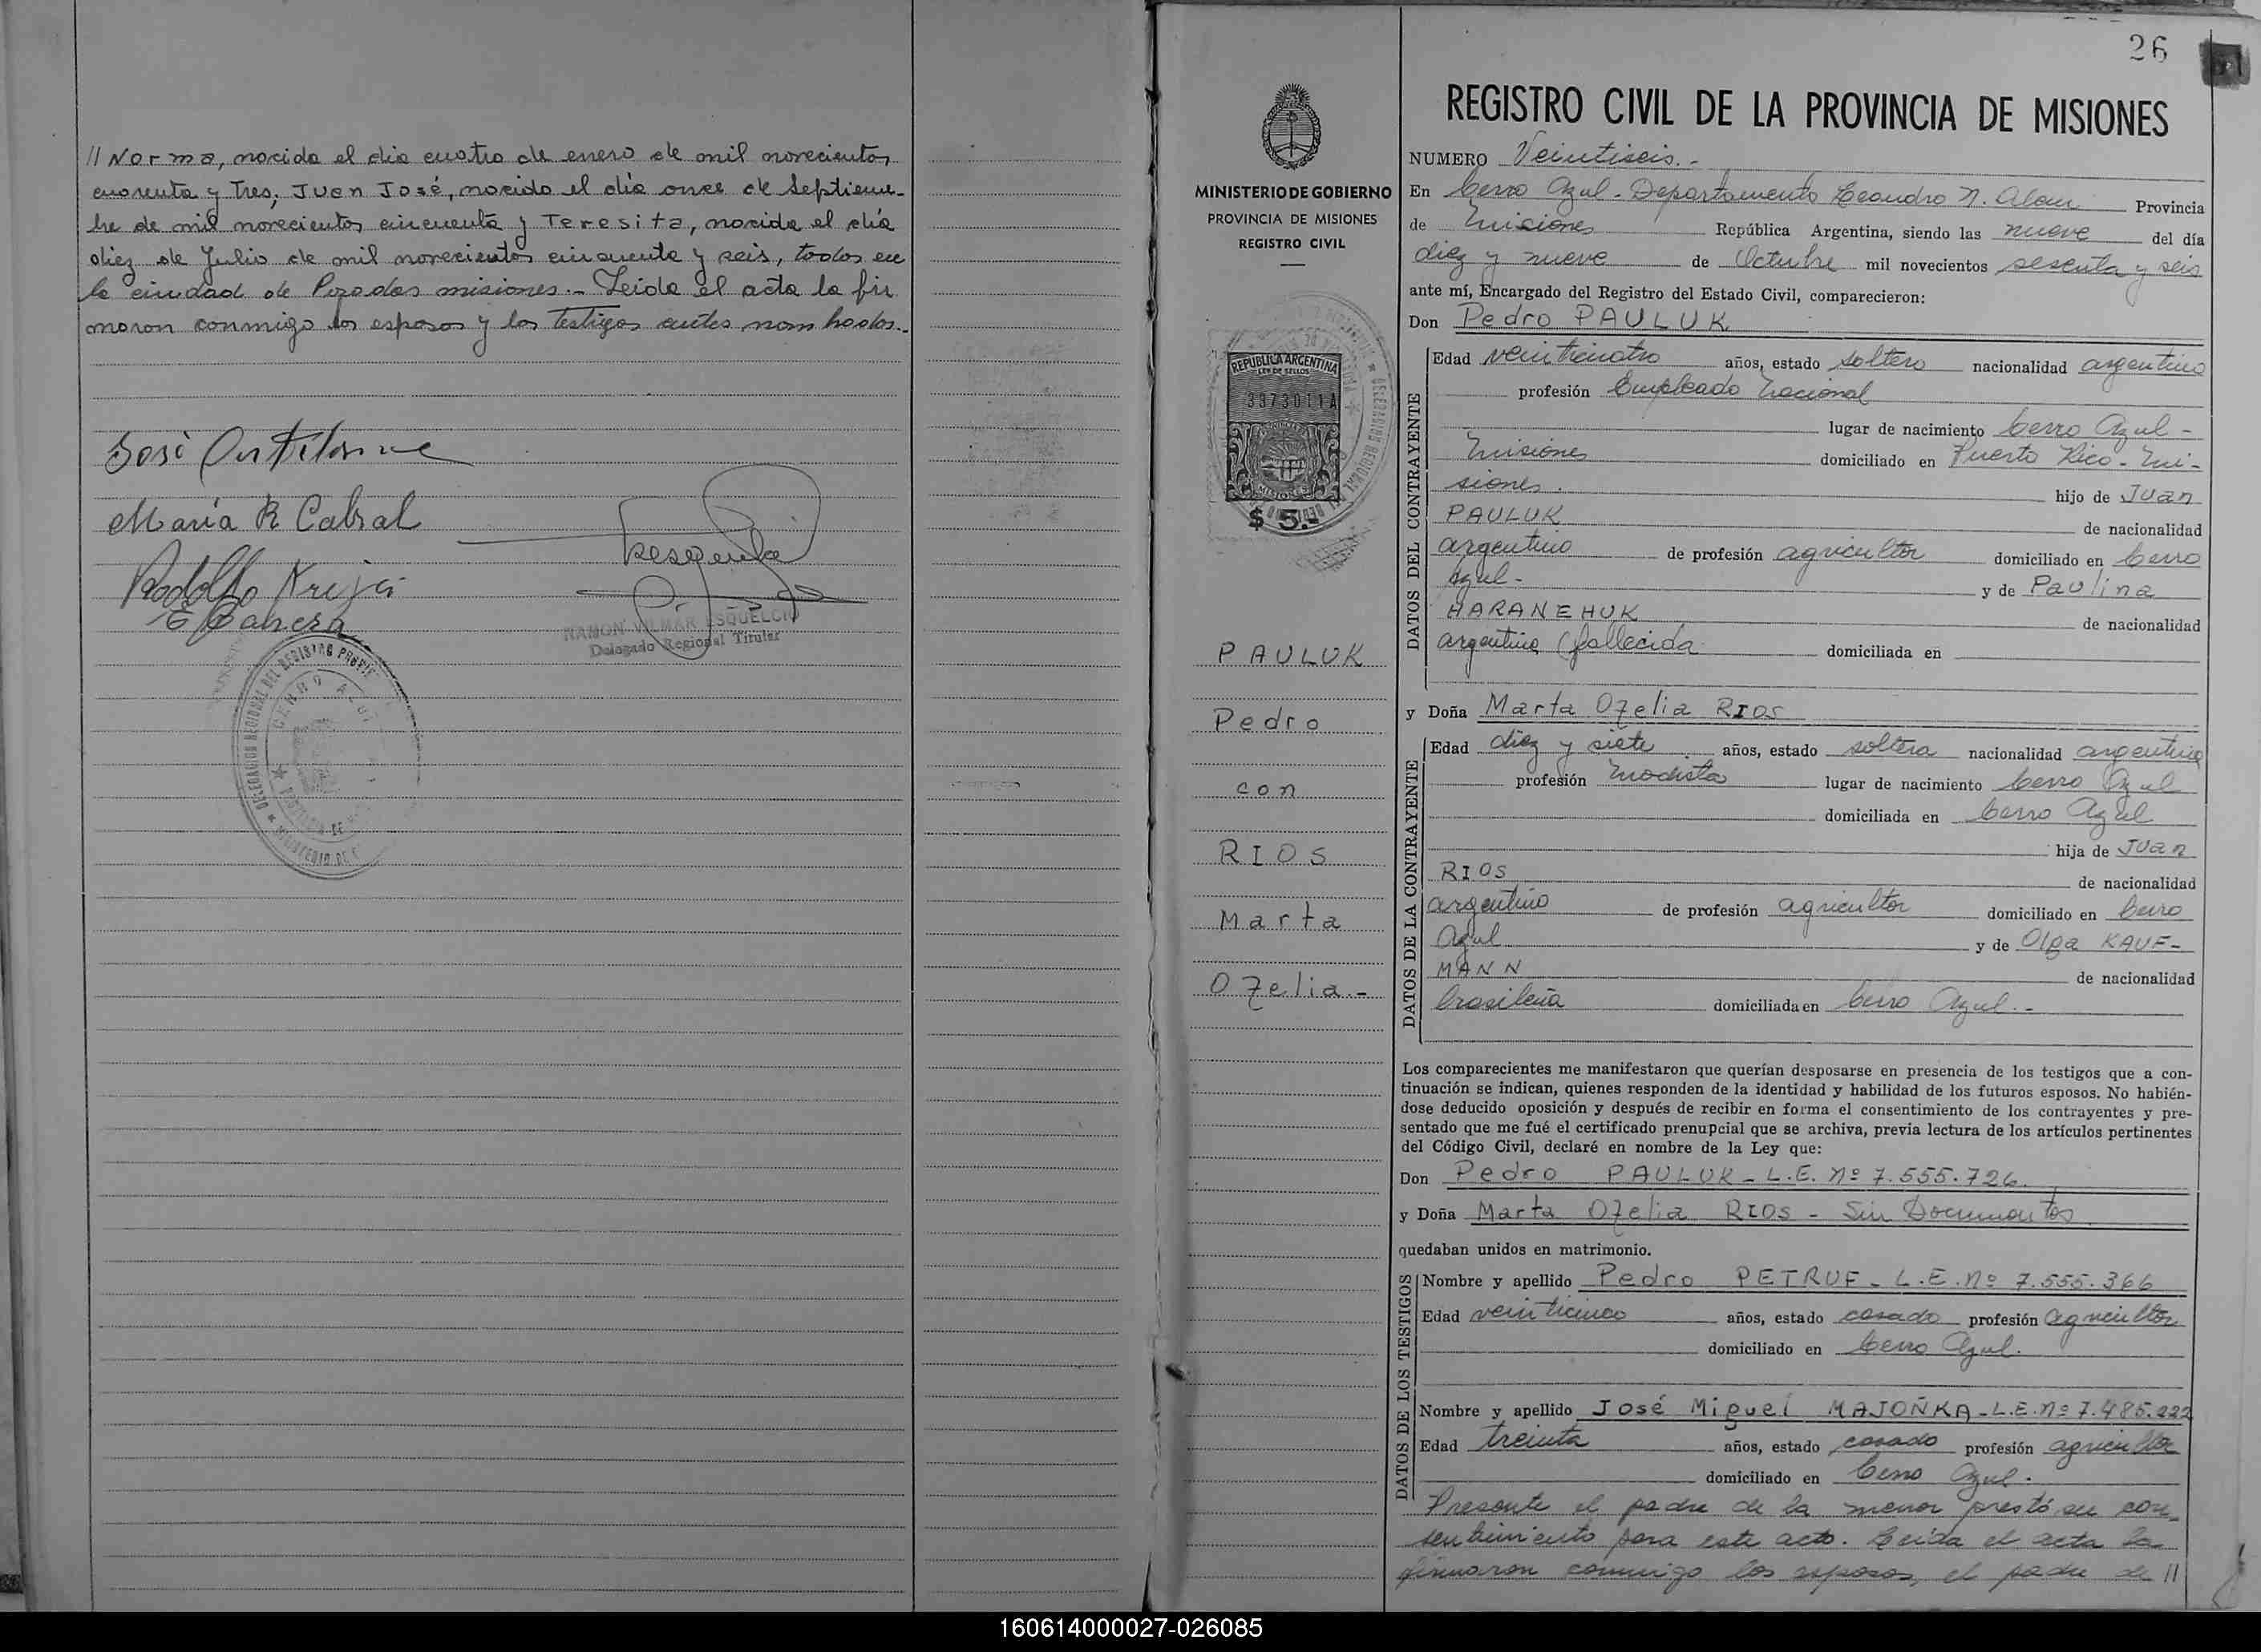 // Norma, nacida el dia cuatro de enero de mil novecientos
cuarenta y tres; Juan José, nacido el día once de Septiem-
bre de mil novecientos cincuenta y Teresita, nacida el día
diez de Julio de mil novecientos cincuenta y seis, todos en
la ciudad de Posadas misiones.- Leida el acta la fir
maron conmigo los esposos y los testigos antes nombrados.-
José
Maria R Cabral
Rodolfo
E Cabrera
RAMON VILMAR ESQUELCIN
Delegado Regional Titular
DELEGACION REGIONAL DEL REGISTRO PROVIN
CERRO AZUL
26
MINISTERIO DE GOBIERNO
PROVINCIA DE MISIONES
REGISTRO CIVIL
REPUBLICA ARGENTINA
LEY DE SELLOS
3373011A
MISIONES
$ 5.-
PAULUK
Pedro
con
RIOS
Marta
Ofelia.-
REGISTRO CIVIL DE LA PROVINCIA DE MISIONES
NUMERO Veintiseis.-
En Cerro Azul - Departamento Leandro N. Alem Provincia
de Misiones República Argentina, siendo las nueve del día
diez y nueve de Octubre mil novecientos sesenta y seis
ante mí, Encargado del Registro del Estado Civil, comparecieron:
Don Pedro PAULUK
DATOS DEL CONTRAYENTE
Edad veinticuatro años, estado soltero nacionalidad argentino
profesión Empleado Nacional
lugar de nacimiento Cerro Azul -
Misiones domiciliado en Puerto Rico - Mi-
siones. hijo de Juan
PAULUK de nacionalidad
argentino de profesión agricultor domiciliado en Cerro
Azul - y de Paulina
HARANEHUK de nacionalidad
argentina (fallecida domiciliada en
y Doña Marta Ofelia RIOS
DATOS DE LA CONTRAYENTE
Edad diez y siete años, estado soltera nacionalidad argentina
profesión modista lugar de nacimiento Cerro Azul
domiciliada en Cerro Azul
hija de Juan
RIOS de nacionalidad
argentino de profesión agricultor domiciliado en Cerro
Azul y de Olga KAUF-
MANN de nacionalidad
brasileña domiciliada en Cerro Azul.-
Los comparecientes me manifestaron que querían desposarse en presencia de los testigos que a con-
tinuación se indican, quienes responden de la identidad y habilidad de los futuros esposos. No habién-
dose deducido oposición y después de recibir en forma el consentimiento de los contrayentes y pre-
sentado que me fué el certificado prenupcial que se archiva, previa lectura de los artículos pertinentes
del Código Civil, declaré en nombre de la Ley que:
Don Pedro PAULUK - L.E. Nº 7.555.726.
y Doña Marta Ofelia RIOS - Sin Documentos
quedaban unidos en matrimonio.
DATOS DE LOS TESTIGOS
Nombre y apellido Pedro PETRUF - L.E. Nº 7.555.366
Edad veinticinco años, estado casado profesión agricultor
domiciliado en Cerro Azul.
Nombre y apellido José Miguel MAJOÑKA - L.E. Nº 7.485.222
Edad treinta años, estado casado profesión agricultor
domiciliado en Cerro Azul.
Presente el padre de la menor prestó su con-
sentimiento para este acto. Leida el acta la
firmaron conmigo los esposos, el padre de //
160614000027-026085